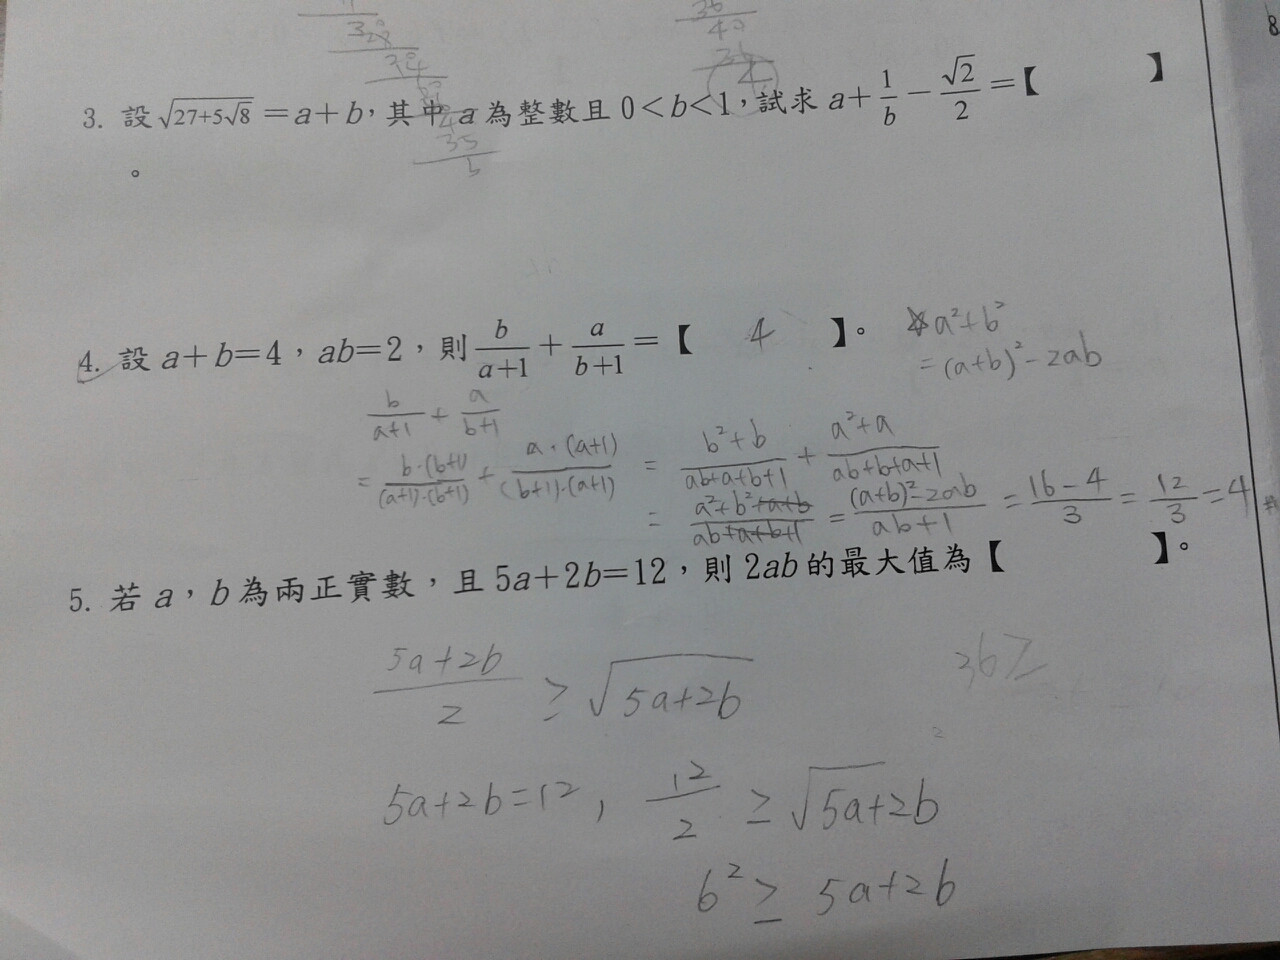 3. 設√(27+5√8) = a+b，其中 a 為整數且 0<b<1，試求 a + 1/b − √2/2 =【 】
。
4. 設 a+b=4，ab=2，則 b/(a+1) + a/(b+1) =【 4 】。 a²+b²
= (a+b)² − 2ab
b/(a+1) + a/(b+1)
= b·(b+1)/(a+1)·(b+1) + a·(a+1)/(b+1)·(a+1) = (b²+b)/(ab+a+b+1) + (a²+a)/(ab+b+a+1)
= (a²+b²+a+b)/(ab+a+b+1) = ((a+b)²−2ab)/(ab+1) = (16−4)/3 = 12/3 = 4
5. 若 a，b 為兩正實數，且 5a+2b=12，則 2ab 的最大值為【 】。
(5a+2b)/2 ≥ √(5a+2b)
36≥
5a+2b=12, 12/2 ≥ √(5a+2b)
6² ≥ 5a+2b
8.